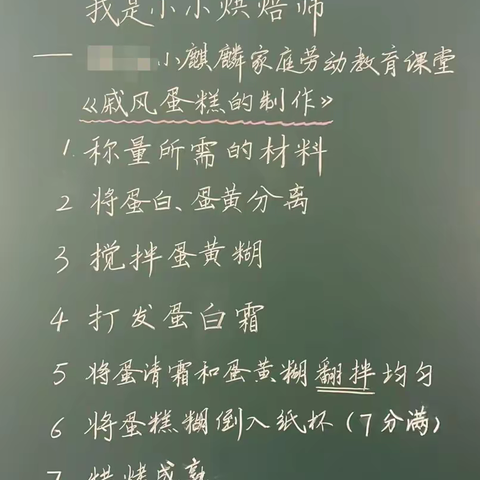 我是小小烘焙师
——小麒麟家庭劳动教育课堂
《戚风蛋糕的制作》
1.称量所需的材料
2 将蛋白、蛋黄分离
3 搅拌蛋黄糊
4 打发蛋白霜
5 将蛋清霜和蛋黄糊翻拌均匀
6 将蛋糕糊倒入纸杯(7分满)
7 烘烤成熟